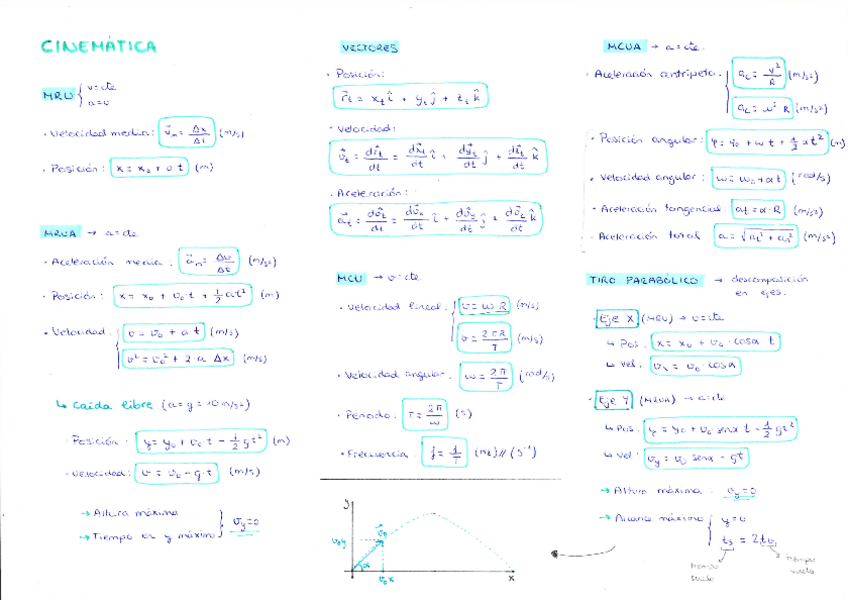 CINEMÁTICA
MRU { v=cte
a=0
· Velocidad media: v⃗m = Δx/Δt (m/s)
· Posición: x = x₀ + v t (m)
MRUA → a=cte
· Aceleración media: a⃗m = Δv/Δt (m/s²)
· Posición: x = x₀ + v₀t + ½ at² (m)
· Velocidad: { v = v₀ + a t (m/s)
v² = v₀² + 2·a Δx (m/s)
↳ Caída libre (a=g=10 m/s²)
· Posición: y = y₀ + v₀t - ½ gt² (m)
· Velocidad: v = v₀ - g·t (m/s)
→ Altura máxima
→ Tiempo en y máximo } vy=0
VECTORES
· Posición:
r⃗t = xt î + yt ĵ + zt k̂
· Velocidad:
· Aceleración:
MCU → v=cte
· Velocidad lineal: { v = ω R (m/s)
v = 2πR/T (m/s)
· Velocidad angular: ω = 2π/T (rad/s)
· Periodo: T = 2π/ω (s)
· Frecuencia: f = 1/T (Hz) // (s⁻¹)
y
v₀y
v⃗₀
α
v₀x
x
MCUA → a=cte.
· Aceleración centrípeta: { ac = v²/R (m/s²)
ac = ω² R (m/s²)
· Posición angular: φ = φ₀ + ωt + ½ αt² (m)
· Velocidad angular: ω = ω₀ + αt (rad/s)
· Aceleración tangencial at = α·R (m/s²)
· Aceleración total a = √at² + an² (m/s²)
TIRO PARABÓLICO → descomposición
en ejes.
· Eje X (MRU) → v=cte
↳ Pos. x = x₀ + v₀·cosα t
↳ Vel. vx = v₀·cosα
· Eje Y (MRUA) → a=cte
↳ Pos. y = y₀ + v₀ senα t - ½ gt²
↳ Vel: vy = v₀ senα - gt
→ Altura máxima: vy=0
→ Alcance máximo { y=0
tiempo
suelo
tiempo